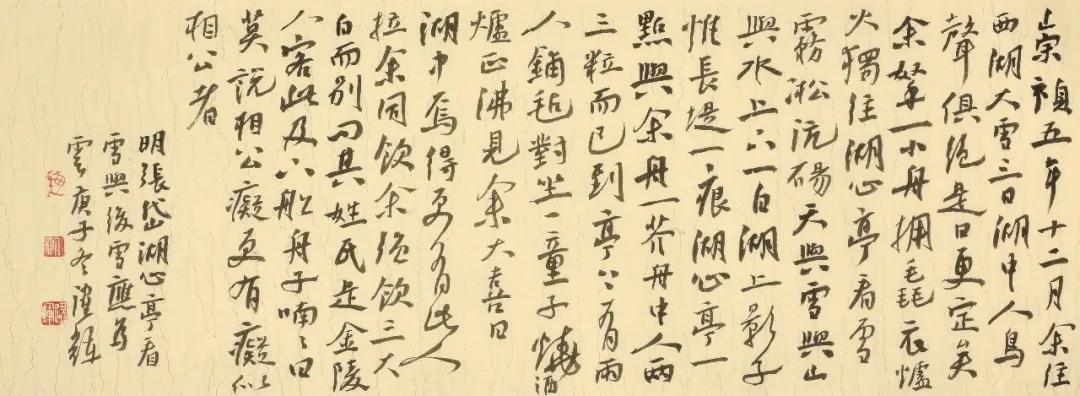 崇禎五年十二月余住
西湖大雪三日湖中人鳥
聲俱絕是日更定矣
余拏一小舟擁毳衣爐
火獨往湖心亭看雪
霧淞沆碭天與雪與山
與水上下一白湖上影子
惟長堤一痕湖心亭一
點與余舟一芥舟中人兩
三粒而已到亭上有兩
人鋪氈對坐一童子燒酒
爐正沸見余大喜曰
湖中焉得更有此人
拉余同飲余強飲三大
白而別問其姓氏是金陵
人客此及下船舟子喃〻曰
莫說相公癡更有癡似
相公者
明張岱湖心亭看
雪與後雪應
庚子冬